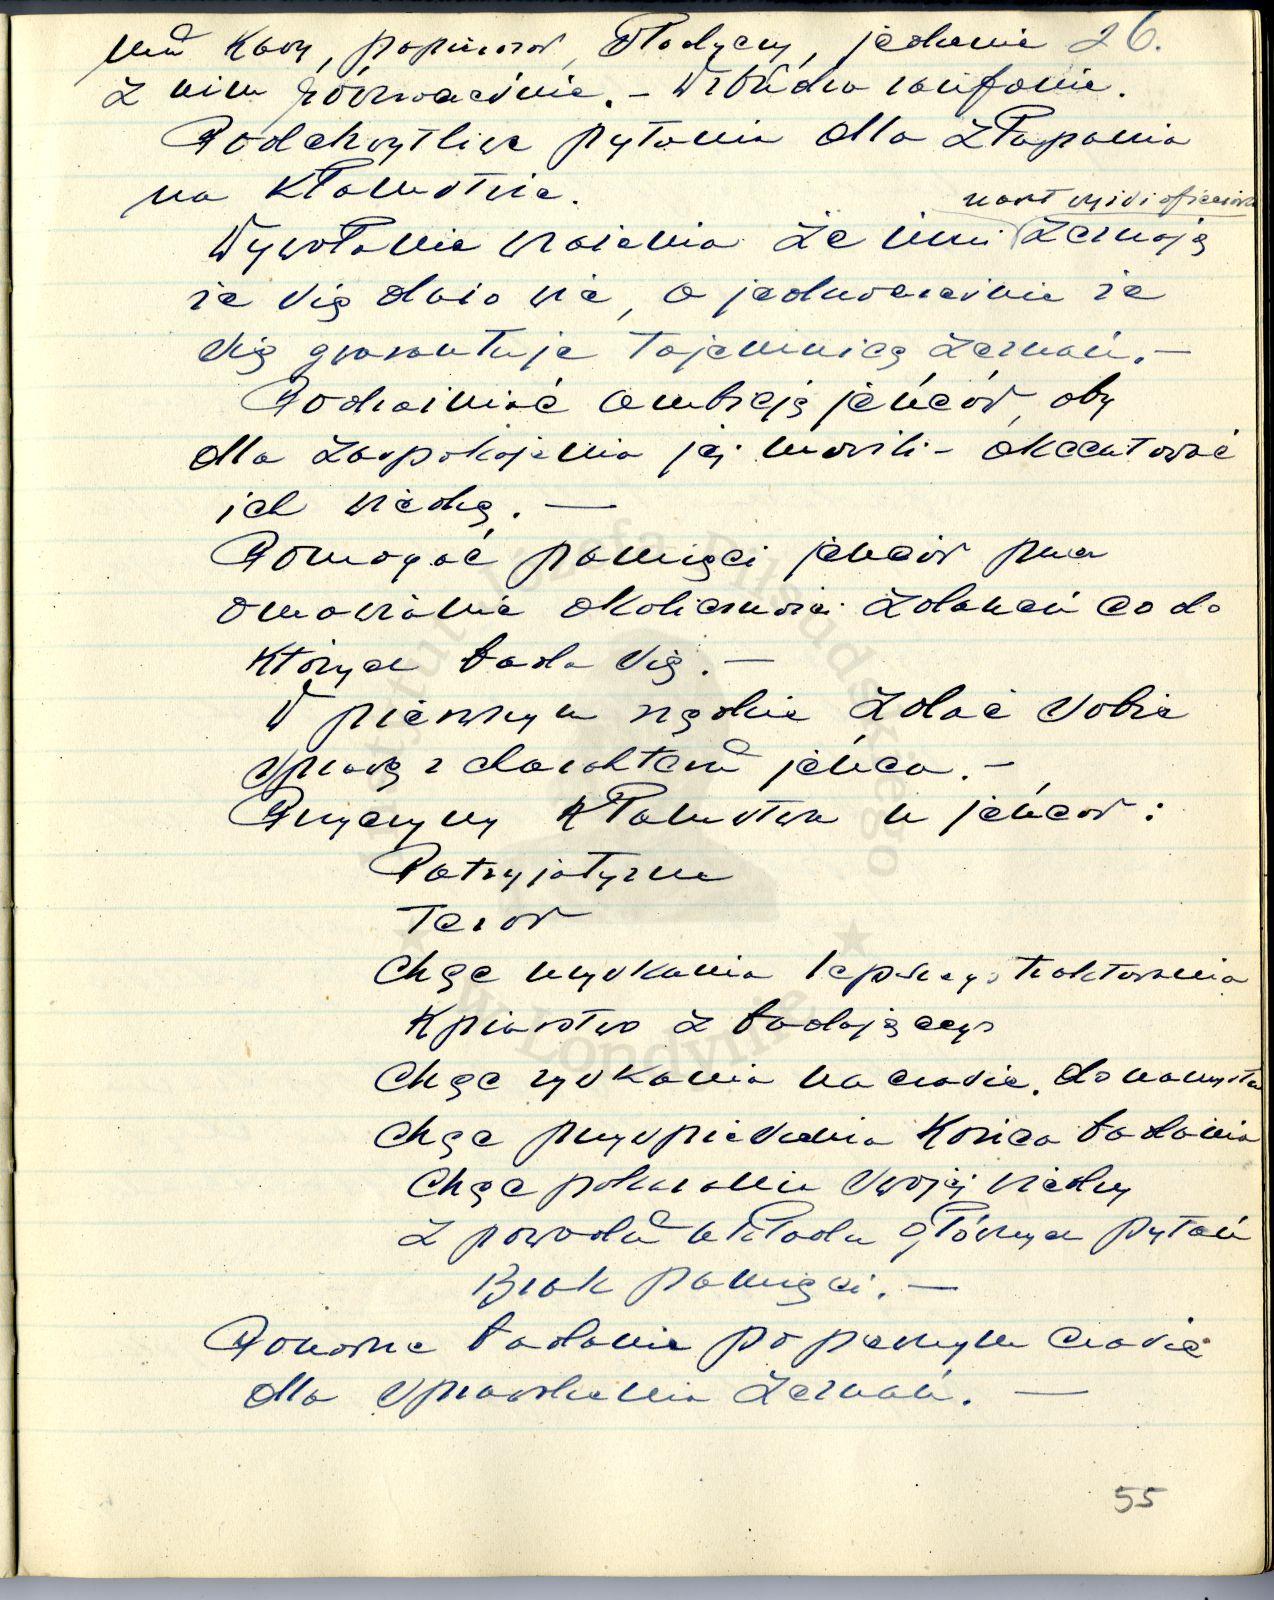 mu kawy, papierosów, słodyczy, jedzenie 26.
z nim równocześnie. – Wzbudza zaufanie.
Podchwytliwe pytania dla złapania
na kłamstwie.
nawet wyżsi oficerowie
Wywołanie wrażenia że inni zeznają
że się dużo wie, a jednocześnie że
się gwarantuje tajemnicę zeznań. –
Podrażniać ambicję jeńców, aby
dla zaspokojenia jej mówili – akcentować
ich wiedzę. —
Pomagać pamięci jeńców przez
omawianie okoliczności zdarzeń co do
których bada się. —
W pierwszym rzędzie zdać sobie
sprawę z charakteru jeńca. –
Przyczyny kłamstwa u jeńców:
Patryjotyzm
Teror
Chęć uzyskania lepszego traktowania
Kpiarstwo z badającego
Chęć zyskania na czasie, do namysłu
Chęć przyspieszenia końca badania
Chęć pokazania swojej wiedzy
Z powodu układu głównych pytań
Brak pamięci. —
Ponowne badanie po pewnym czasie
dla sprawdzenia zeznań. —
55
Instytut Józefa Piłsudskiego
w Londynie